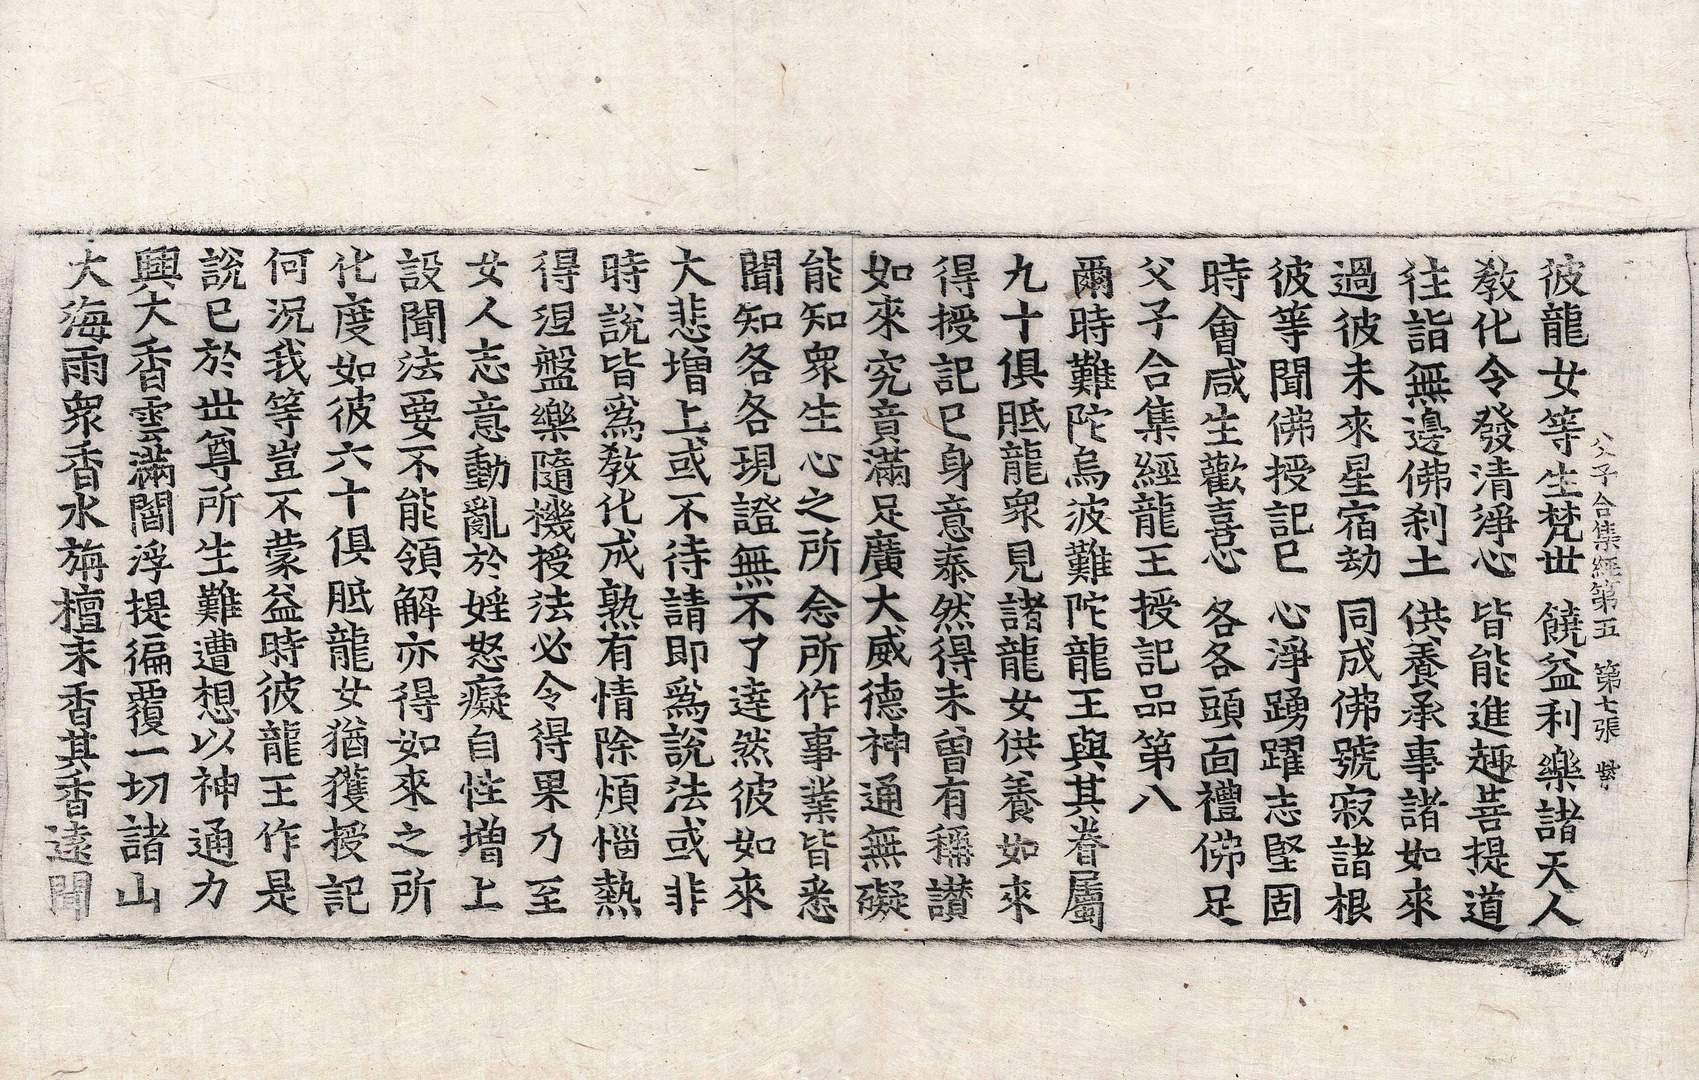 父子合集經第五 第七張
彼龍女等生梵世 饒益利樂諸天人
敎化令發清淨心 皆能進趣菩提道
往詣無邊佛刹土 供養承事諸如來
過彼未來星宿劫 同成佛號寂諸根
彼等聞佛授記已 心淨踴躍志堅固
時會咸生歡喜心 各各頭面禮佛足
父子合集經龍王授記品第八
爾時難陀烏波難陀龍王與其眷屬
九十俱胝龍衆見諸龍女供養如來
得授記已身意泰然得未曾有稱讃
如來究竟滿足廣大威德神通無礙
能知衆生心之所念所作事業皆悉
聞知各各現證無不了達然彼如來
大悲增上或不待請即爲說法或非
時說皆爲敎化成熟有情除煩惱熱
得涅盤樂隨機授法必令得果乃至
女人志意動亂於婬怒癡自性增上
設聞法要不能領解亦得如來之所
化度如彼六十俱胝龍女猶獲授記
何況我等豈不蒙益時彼龍王作是
說已於世尊所生難遭想以神通力
興大香雲滿閻浮提徧覆一切諸山
大海雨衆香水旃檀末香其香遠聞